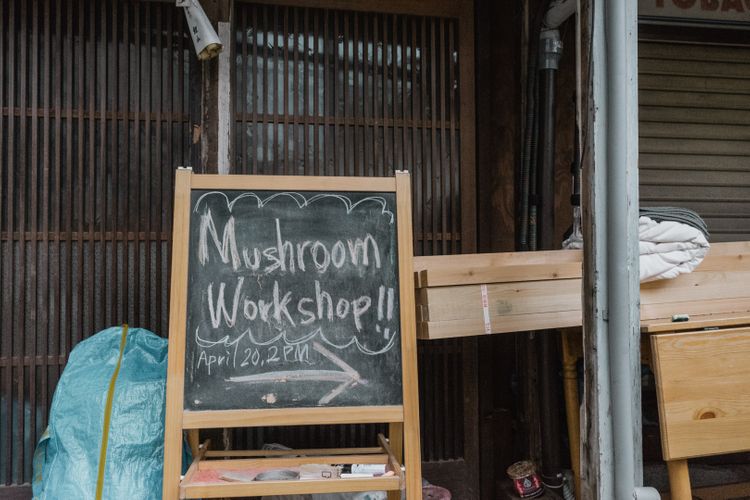 Mushroom
Workshop!!
April 20, 2PM